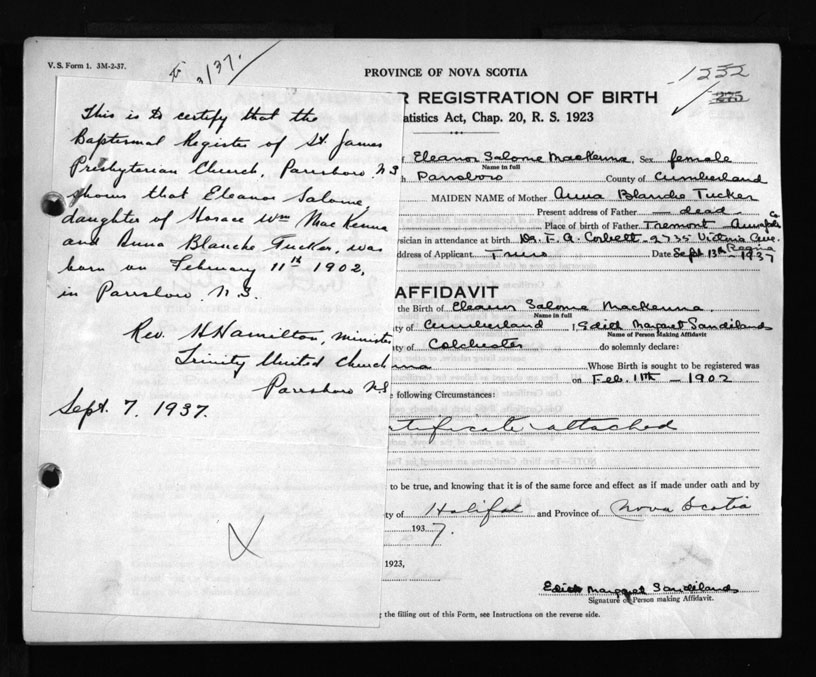 V. S. Form 1. 3M-2-37.
3/37.
PROVINCE OF NOVA SCOTIA
1232
275
R REGISTRATION OF BIRTH
tatistics Act, Chap. 20, R. S. 1923
This is to certify that the
Baptismal Register of St. James
Presbyterian Church, Parrsboro N.S
shows that Eleanor Salome,
daughter of Horace Wm MacKenna
and Anna Blanche Tucker, was
born on February 11th 1902,
in Parrsboro N.S.
Rev. H Hamilton, minister
Trinity United Church
Parrsboro N.S
Sept. 7. 1937.
X
of Eleanor Salome MacKenna, Sex female
Name in full
h Parrsboro County of Cumberland
MAIDEN NAME of Mother Anna Blanche Tucker
Present address of Father dead
Place of birth of Father Tremont Annapolis Co
ysician in attendance at birth Dr. F. A. Corbett - 2735 Victoria Ave. Regina
ddress of Applicant Truro Date Sept 13th - 1937
AFFIDAVIT
the Birth of Eleanor Salome MacKenna.
Name in full
ty of Cumberland I, Edith Margaret Sandilands
Name of Person Making Affidavit
ty of Colchester do solemnly declare:
nna Whose Birth is sought to be registered was
on Feb. 11th - 1902
e following Circumstances:
rtificate attached
to be true, and knowing that it is of the same force and effect as if made under oath and by
ty of Halifax and Province of Nova Scotia
1937.
1923,
Edith Margaret Sandilands
Signature of Person making Affidavit.
g the filling out of this Form, see Instructions on the reverse side.